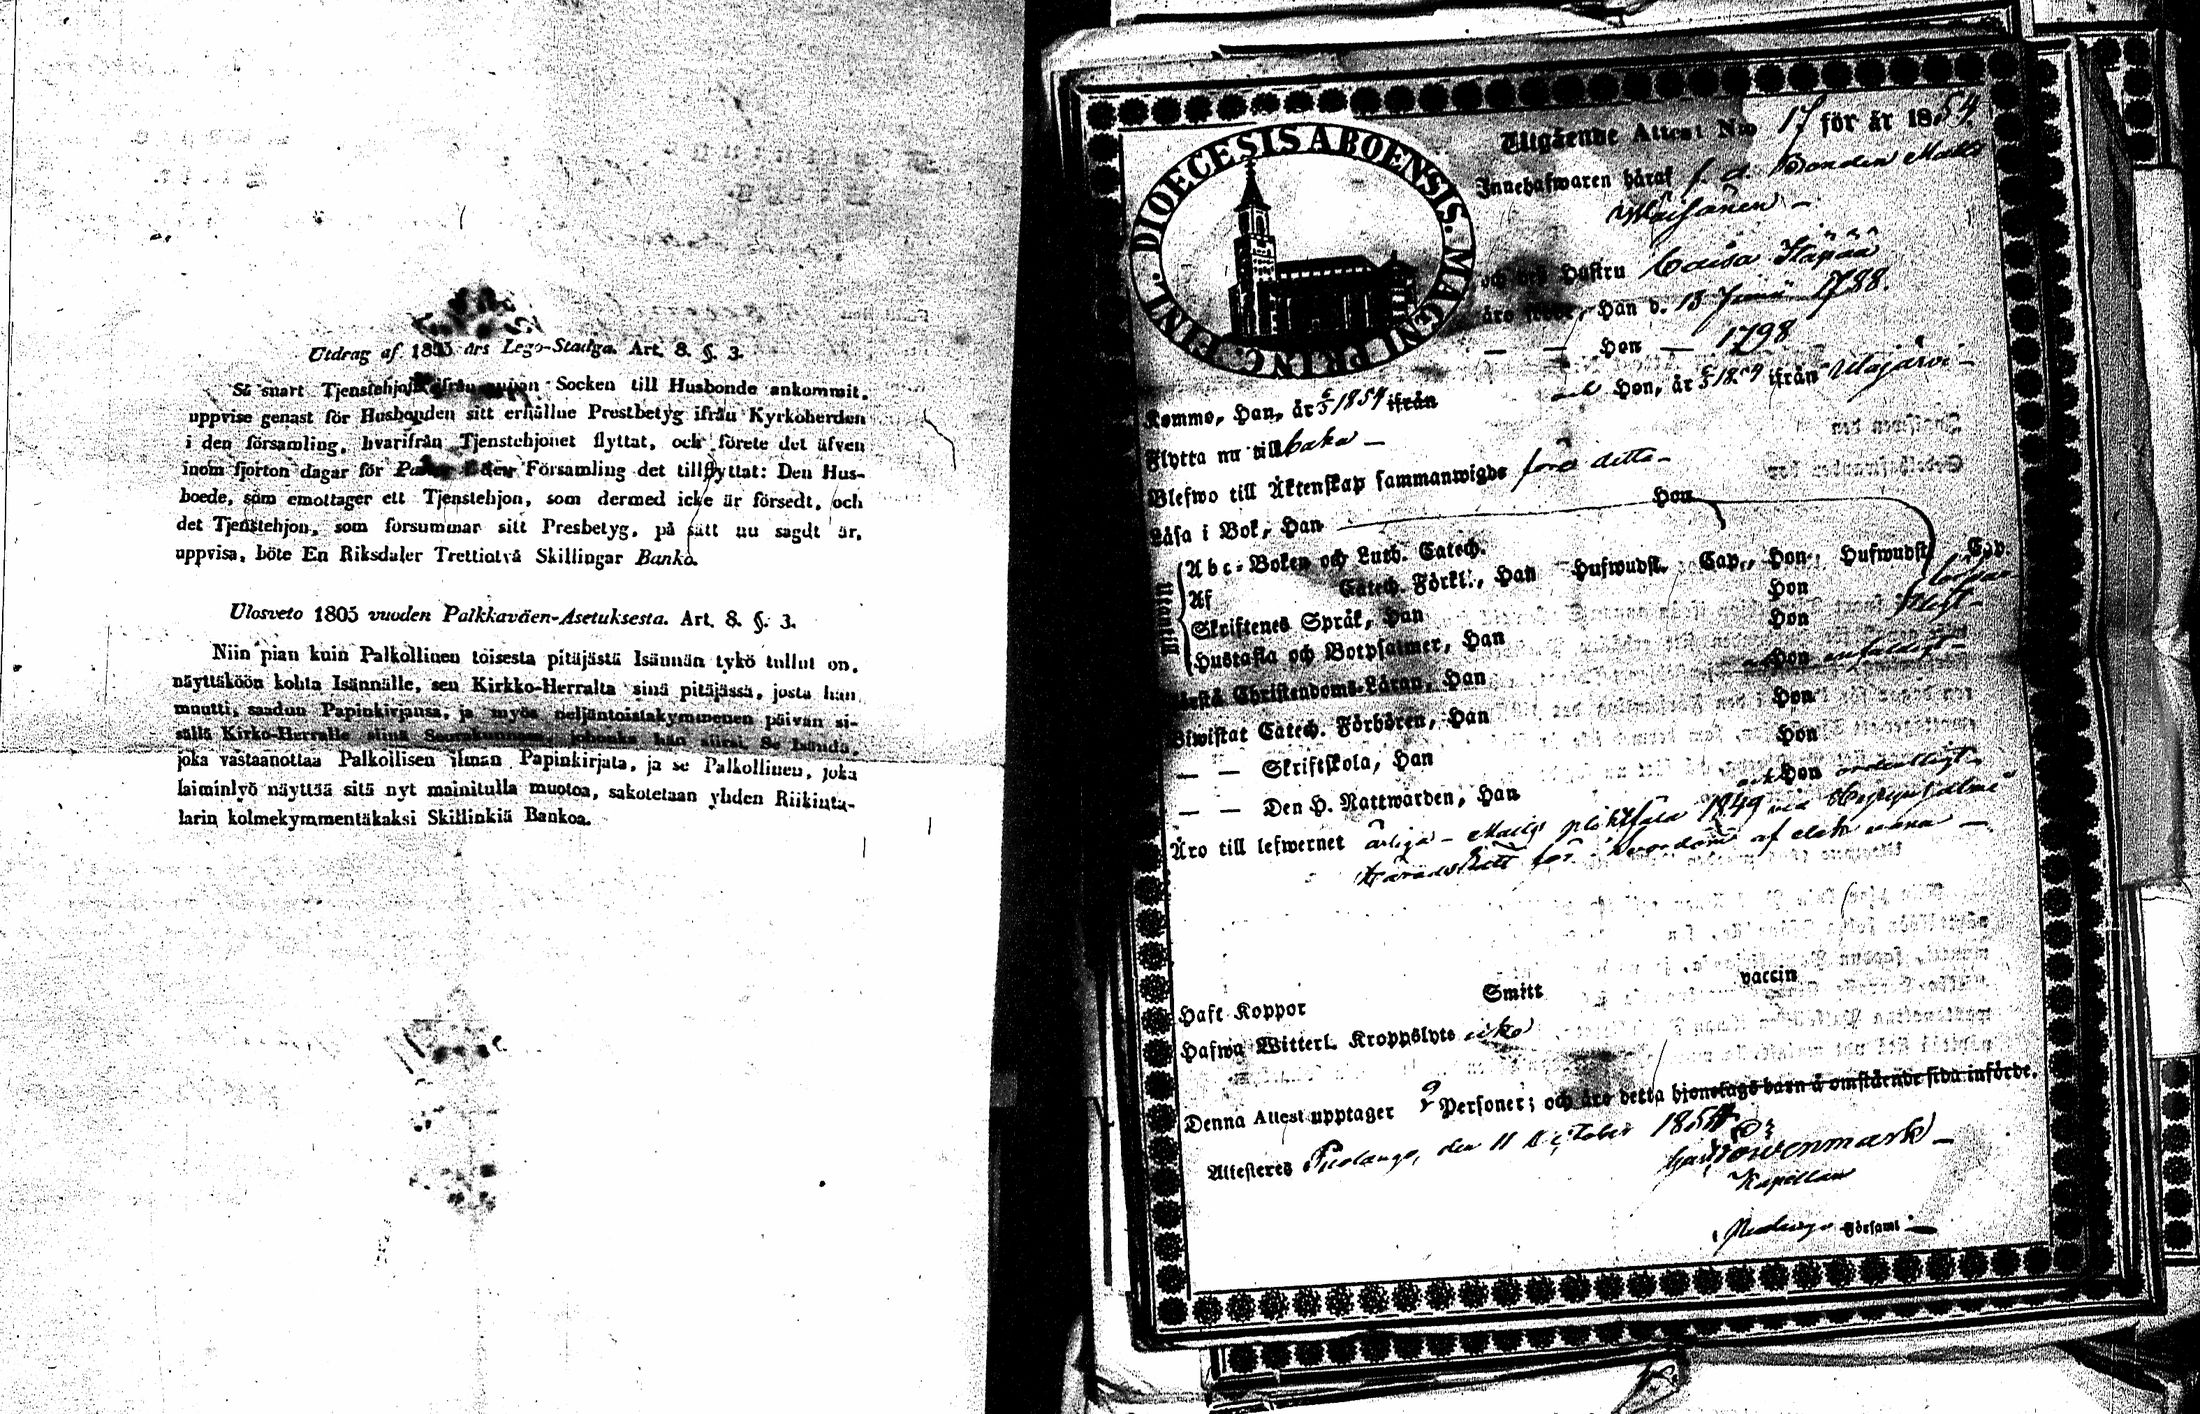 Utdrag af 1805 års Lego-Stadga. Art. 8. §. 3.
Så snart Tjenstehjon ifrån annan Socken till Husbonde ankommit,
uppvise genast för Husbonden sitt erhållne Prestbetyg ifrån Kyrkoherden
i den församling, hvarifrån Tjenstehjonet flyttat, och förete det äfven
inom fjorton dagar för Församling det tillflyttat: Den Hus-
boede, som emottager ett Tjenstehjon, som dermed icke är försedt, och
det Tjenstehjon, som försummar sitt Presbetyg, på sätt nu sagdt är,
uppvisa, böte En Riksdaler Trettiotvå Skillingar Banko.
Ulosveto 1805 vuoden Palkkaväen-Asetuksesta. Art. 8. §. 3.
Niin pian kuin Palkollinen toisesta pitäjästä Isännän tykö tullut on,
näyttäköön kohta Isännälle, sen Kirkko-Herralta sinä pitäjässä, josta hän
muutti, saadun Papinkirjansa, ja myös neljäntoistakymmenen päivän si-
sällä Kirko-Herralle siinä Seurakunnassa, johonka hän siirsi. Se Isändä,
joka vastaanottaa Palkollisen ilman Papinkirjata, ja se Palkollinen, joka
laiminlyö näyttää sitä nyt mainitulla muotoa, sakotetaan yhden Riikinta-
larin kolmekymmentäkaksi Skillinkiä Bankoa.
DIOECESIS ABOENSIS. MAGNI PRINC. FINL.
Utgående Attest N:o 17 för år 1854.
Innehafwaren häraf f. d. Bonden Matts
Wäisänen –
och Hustru Caisa Häpää
äro födde, Han d. 13 Junii 1788.
— — Hon — 1798
Kommo, Han, år 1854 ifrån och Hon, år 1854 ifrån Utajärvi –
Flytta nu tillbaka –
Blefwo till Äktenskap sammanwigde före detta –
Läsa i Bok, Han Hon
Utantill
Abc-Boken och Luth. Catech.
Af Catech. Förkl., Han Hufwudst. Cap., Hon Hufwudst. Cap.
Skriftenes Språk, Han Hon
Hustafla och Botpsalmer, Han Hon
Förstå Christendoms-Läran, Han Hon enfaldigt –
Biwistat Catech. Förhören, Han Hon
— — Skriftskola, Han Hon
— — Den H. Nattwarden, Han och Hon ordentligt –
Äro till lefwernet ärliga – 1849 vid Hyrynsalmi
Häradsrätt för af
Haft Koppor Smitt vaccin
Hafwa Witterl. Kroppslyte icke
Denna Attest upptager 2 Personer; och äro detta hjonelags barn å omstående sida införde.
Attesteres Pudongo, den 11 October 1854
Kapellan
Pudongo Församl.